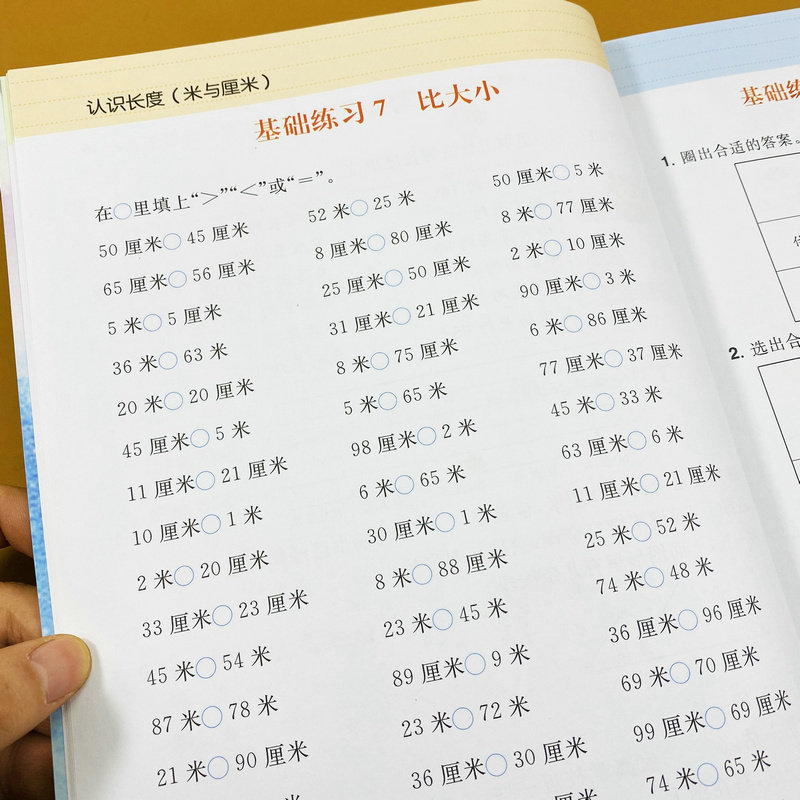 认识长度（米与厘米）
基础练习 7 比大小
在○里填上“＞”“＜”或“＝”。
50 厘米○45 厘米
65 厘米○56 厘米
5 米○5 厘米
36 米○63 米
20 米○20 厘米
45 厘米○5 米
11 厘米○21 厘米
10 厘米○1 米
2 米○20 厘米
33 厘米○23 厘米
45 米○54 米
87 米○78 米
21 米○90 厘米
52 米○25 米
8 厘米○80 厘米
25 厘米○50 厘米
31 厘米○21 厘米
8 米○75 厘米
5 米○65 米
98 厘米○2 米
6 米○65 米
30 厘米○1 米
8 米○88 厘米
23 米○45 米
89 厘米○9 米
23 米○72 米
36 厘米○30 厘米
厘米
50 厘米○5 米
8 米○77 厘米
2 米○10 厘米
90 厘米○3 米
6 米○86 厘米
77 厘米○37 厘米
45 米○33 米
63 厘米○6 米
11 厘米○21 厘米
25 米○52 米
74 米○48 米
36 厘米○96 厘米
69 米○70 厘米
99 厘米○69 厘米
74 米○65 米
基础练
1. 圈出合适的答案。
2. 选出合